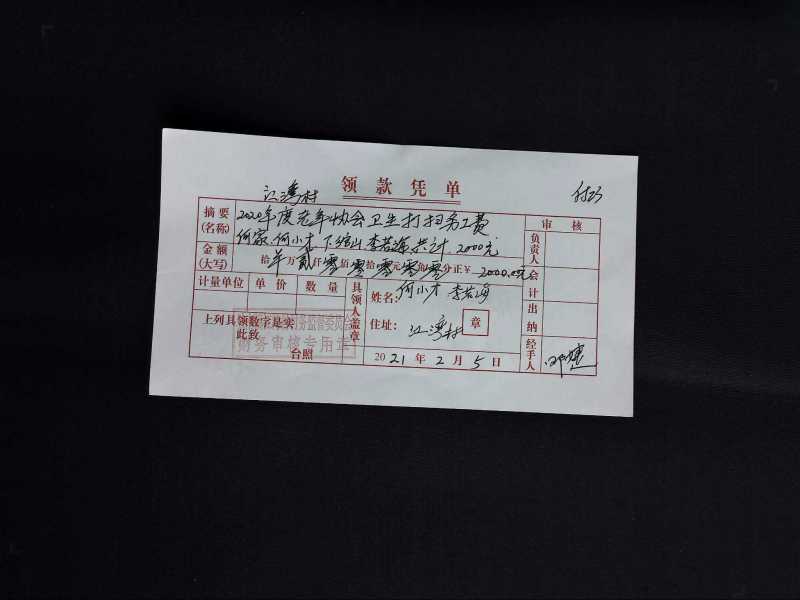 领款凭单
江湾村
付
摘要(名称) 2020年度老年协会卫生打扫务工费
何家 何小木 下 李若海 共计 2000元
审核
金额(大写) 拾 万贰仟零佰零拾零元零角零分正¥ 2000.00元
计量单位 单价 数量
具领人盖章
姓名: 何小木 李若海
住址: 江湾村 章
上列具领数字是实
此致
台照
财务监督委员会
财务审核专用章
2021年2月5日
负责人
会计
出纳
经手人 邓建